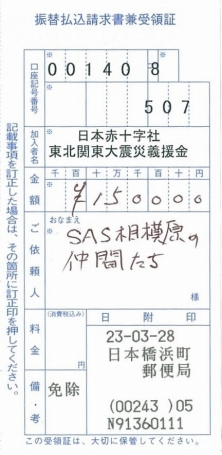 振替払込請求書兼受領証
口座記号番号
00140 8
507
加入者名
日本赤十字社
東北関東大震災義援金
金額
千 百 十 万 千 百 十 円
¥150000
ご依頼人
おなまえ
SAS相模原の
仲間たち
様
料金
(消費税込み)
円
備考
免除
日附印
23-03-28
日本橋浜町
郵便局
(00243 )05
N91360111
記載事項を訂正した場合は、その箇所に訂正印を押してください。
この受領証は、大切に保管してください。